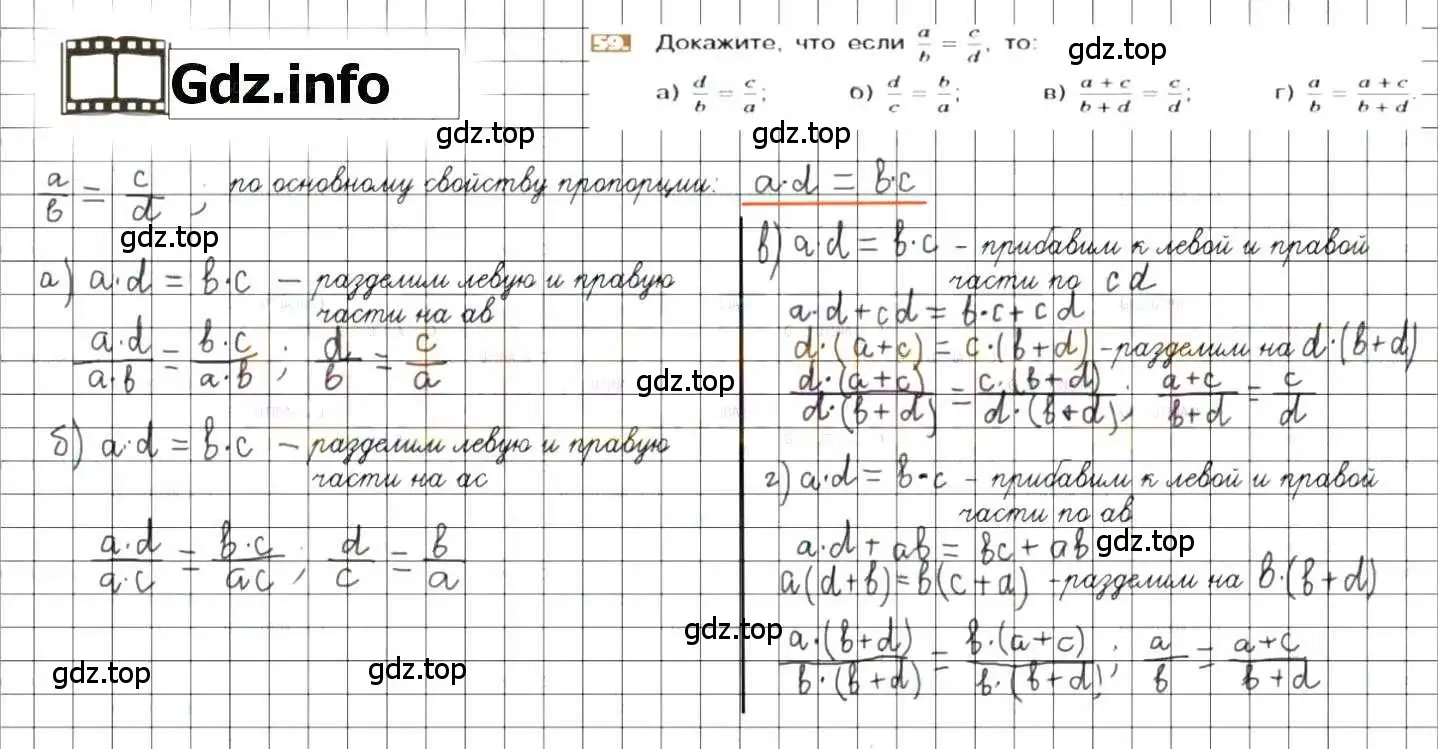 Gdz.info
59. Докажите, что если a/b = c/d, то:
а) d/b = c/a; б) d/c = b/a; в) (a + c)/(b + d) = c/d; г) a/b = (a + c)/(b + d).
gdz.top
gdz.top
gdz.top
a/b = c/d ; по основному свойству пропорции: a·d = b·c
gdz.top
а) a·d = b·c – разделим левую и правую
части на ab
(a·d)/(a·b) = (b·c)/(a·b) ; d/b = c/a
gdz.top
б) a·d = b·c – разделим левую и правую
части на ac
(a·d)/(a·c) = (b·c)/(ac) ; d/c = b/a
gdz.top
gdz.top
в) a·d = b·c – прибавим к левой и правой
части по cd
a·d + cd = b·c + cd
d·(a+c) = c·(b+d) – разделим на d·(b+d)
(d·(a+c))/(d·(b+d)) = (c·(b+d))/(d·(b+d)) ; (a+c)/(b+d) = c/d
г) a·d = b·c – прибавим к левой и правой
части по ab
a·d + ab = bc + ab
gdz.top
a(d+b) = b(c+a) – разделим на b·(b+d)
gdz.top
(a·(b+d))/(b·(b+d)) = (b·(a+c))/(b·(b+d)) ; a/b = (a+c)/(b+d)